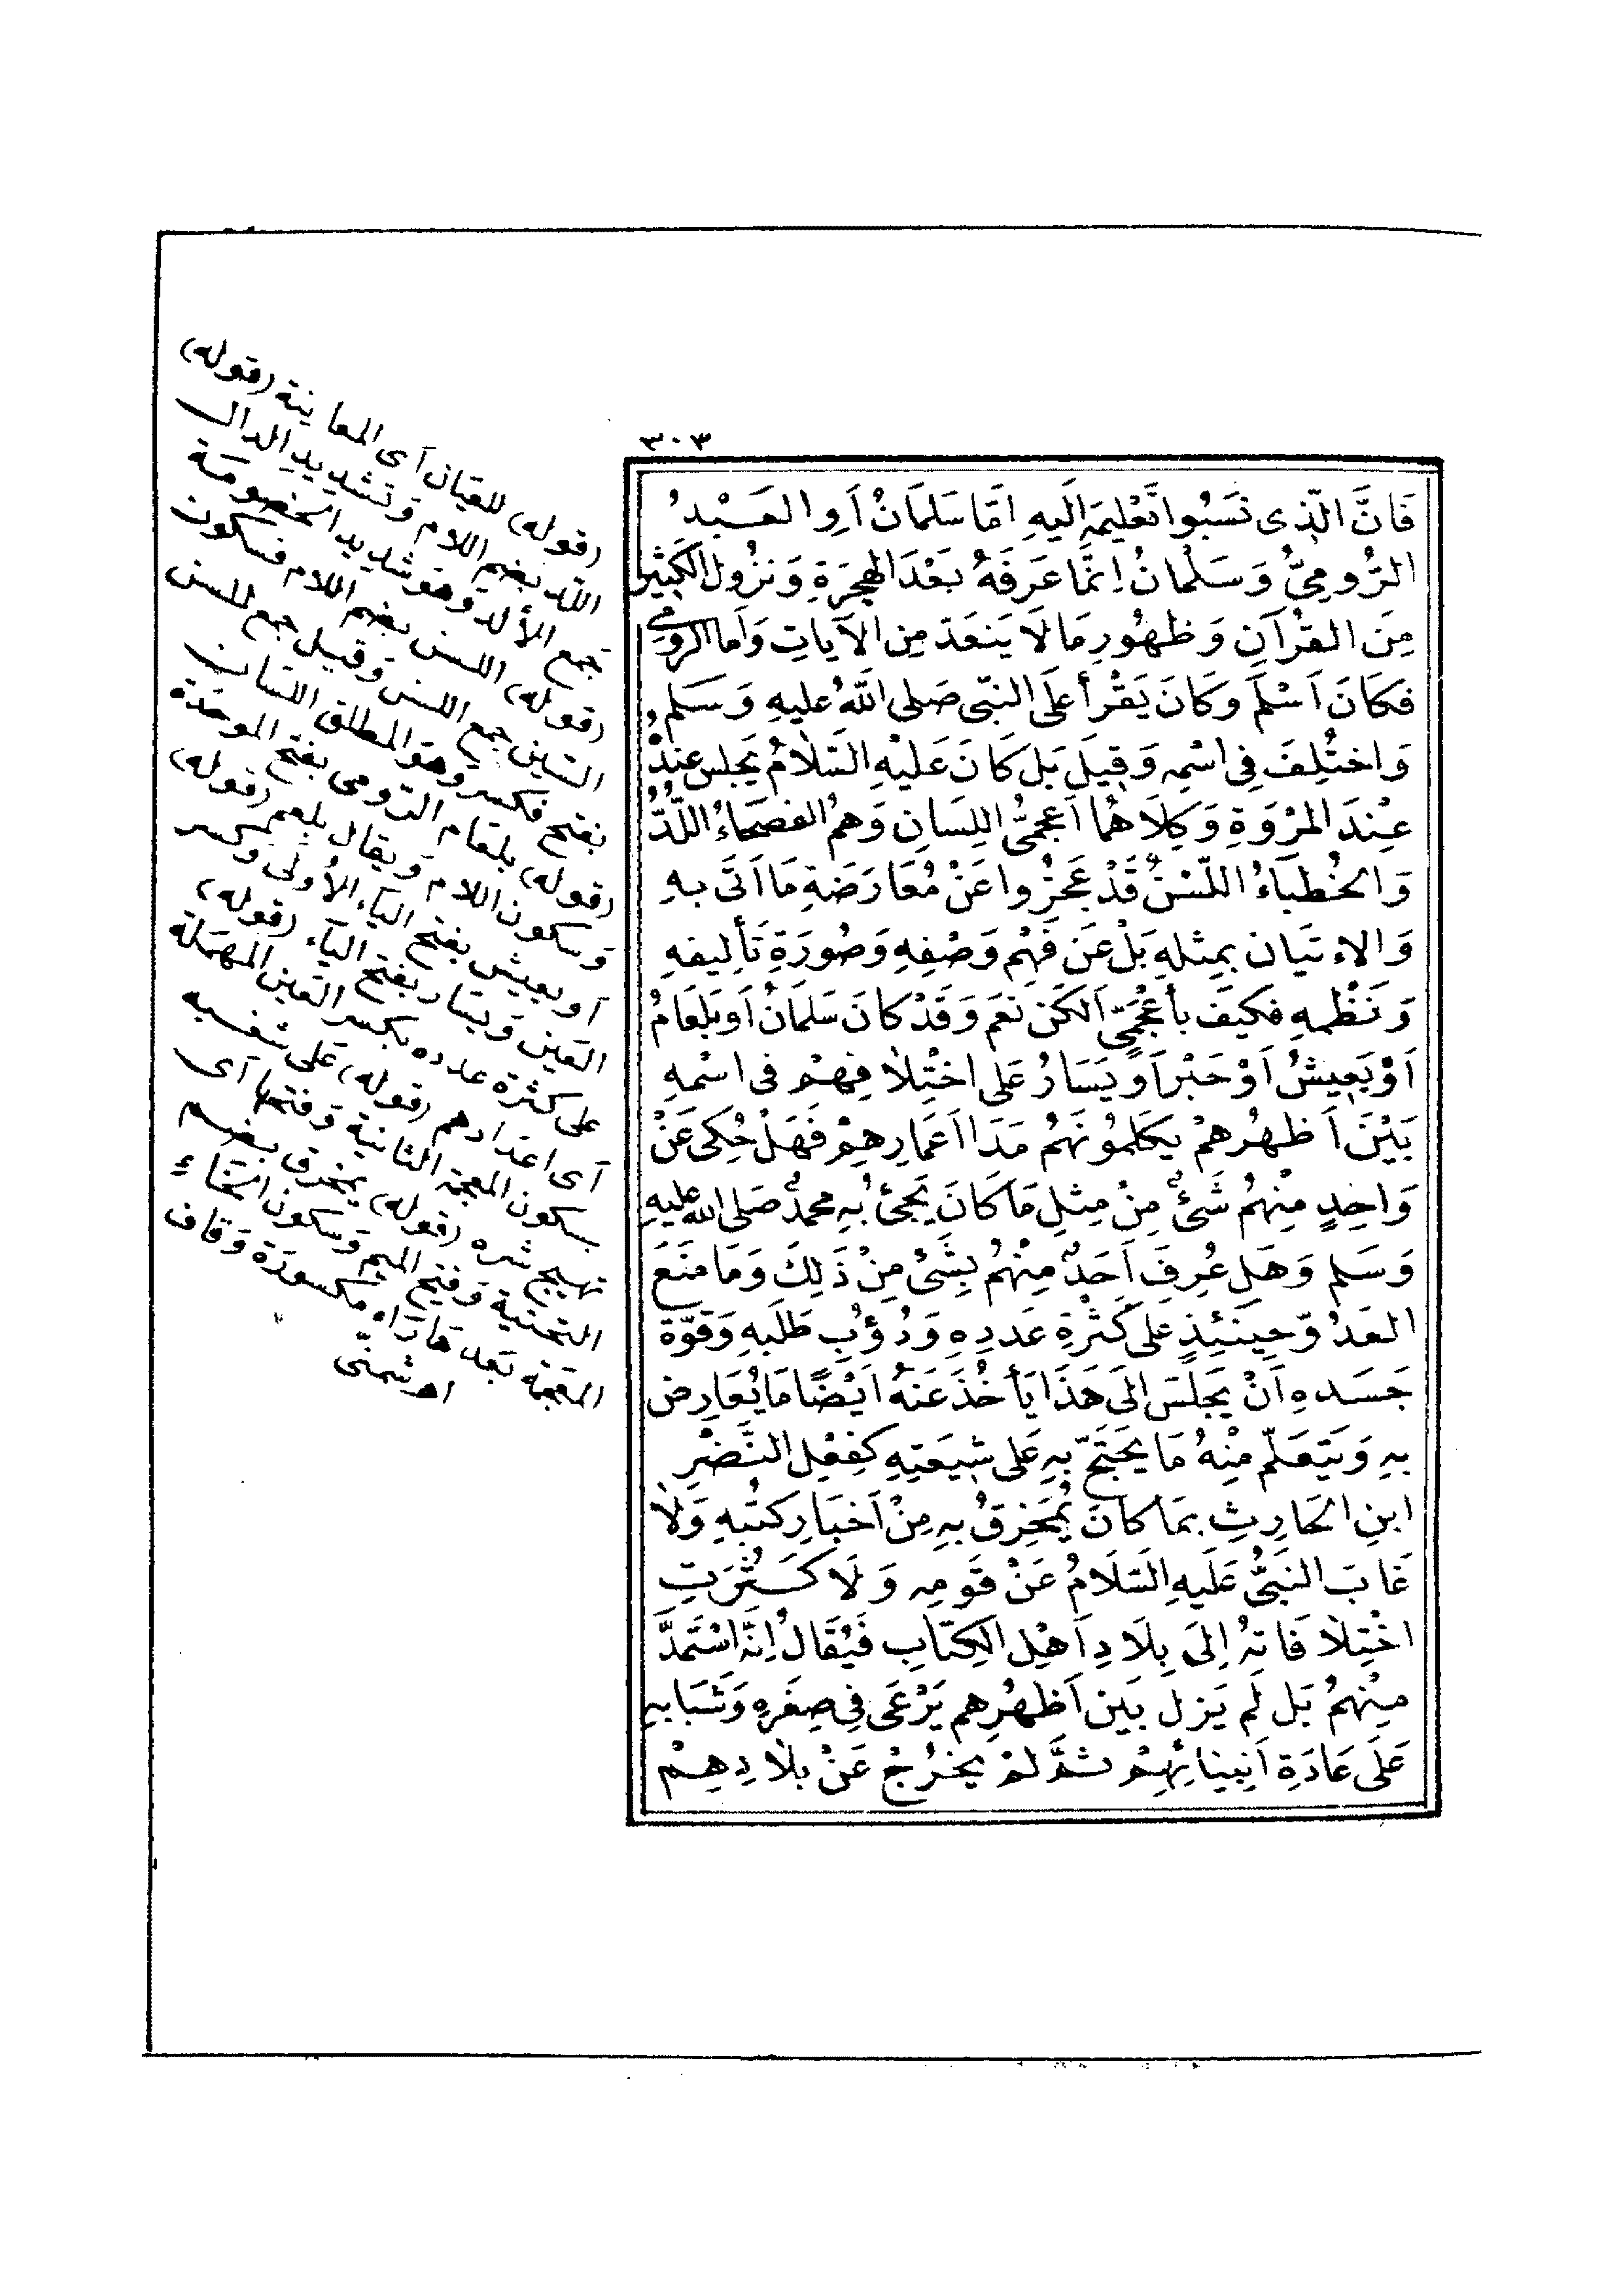 ٣٠٣
فَاِنَّ الَّذِى نَسَبُوا تَعْلِيمَهُ اِلَيهِ اِمَّا سَلمَانُ اَوِ العَبْدُ
الرُّومِىُّ وَسَلْمَانُ اِنَّمَا عَرَفَهُ بَعْدَ الهِجرَةِ وَنزُولِ الكَثِيْرِ
مِنَ القُرْآنِ وَظُهُورِ مَا لَا يَنعَدّ مِنَ الآيَاتِ وَاَما الرُّومىّ
فكَانَ اَسْلَمَ وَكَانَ يَقْرَأُ عَلَى النبّى صَلى اللّٰهُ عليهِ وَسَلم
وَاختُلِفَ فِى اسْمِه وَقِيلَ بَل كَانَ عَلَيْهِ السَّلاَمُ يَجلِس عِندَهُ
عِنْدَ المرْوَةِ وَكِلَاهُمَا اَعجَمىُّ اللِسَانِ وَهُمُ الفصَحَاءُ اللُّدُّ
وَالخُطبَاءُ اللُّسْنُ قَدْ عَجَزُوا عَنْ مُعَارَضَةِ مَا اَتَى بهِ
وَالاِءتيَانِ بمِثلهِ بَلْ عَن فَهْمِ وَصْفِهِ وَصُورَةِ تَأليفهِ
وَنَظْمِهِ فكيَفَ بأَعْجَمِىّ اَلكَن نَعَم وَقَدْ كَانَ سَلمَانُ اَو بَلعَامُ
اَوْ يَعِيشُ اَوْ جَبْر اَو يَسَارُ عَلى اختِلاَفِهمْ فى اسْمهِ
بَيْنَ اَظهُرِهمْ يكَلمُونَهُم مَدَا اَعمَارِهِمْ فَهَلْ حُكِى عَنْ
وَاحِدٍ مِنْهُم شَئٌ مِنْ مِثلِ مَا كَانَ يَجئُ بِه محمدٌ صَلى اللّٰه عليهِ
وَسَلم وَهَل عُرِفَ اَحَدٌ مِنْهُم بِشَئ مِنْ ذَلِكَ وَمَا مَنَعَ
العَدُوَّ حِينَئِذٍ عَلى كَثْرَةِ عَدَدِهِ وَدُؤُبِ طَلَبهِ وَقوّةِ
حَسَدهِ اَنْ يَجلسَ اِلى هَذَا يَأخُذَ عَنهُ اَيْضًا مَا يُعَارِض
بهِ وَيَتَعَلّم مِنْهُ مَا يَحتَجّ بهِ عَلى شِيعَتِهِ كَفِعْلِ النَّضْرِ
ابنِ الحَارِثِ بمَا كَانَ يُمَخرِقُ بهِ مِنْ اَخبَارِ كتُبهِ وَلاَ
غَابَ النَبىُّ عَلَيهِ السَّلَامُ عَنْ قَومِه وَلَا كَثُرَتِ
اخْتِلاَفَاتهُ اِلىَ بِلَادِ اَهْلِ الكِتَابِ فَيُقَالُ اِنَّهُ اسْتَمَدَّ
مِنْهمُ بَل لَم يَزلْ بَين اَظهُرِهِم يَرْعَى فِى صِغَرِهِ وَشَبَابهِ
عَلَى عَادَةِ اَنبيَائهِمْ ثمَّ لَمْ يَخرُجْ عَنْ بلاَدِهِمْ
(قوله) للعيَان اَى المعاينة (قوله)
اللدّ بضم اللام وَتشديد الدال
جمع الأَلدّ وهوَ شديد الخصومَة
(قوله) اللسن بضم اللام فسكون
السّين جمع اللسن وَقيل جمع للسن
بفتح فكسر وهوَ المطلق اللسَان
(قوله) بلعَام الرّومى بفتح الموحّدة
وَسكون اللام وَيقال بلعم (قوله)
اَو يعيش بفتح اليَاء الأولى وكسر
العَين وَيسَار بفتح اليَاء (قوله)
على كثرة عدده بكسر العَين المهمَلة
اَى اعدادهم (قوله) عَلى شغبه
بسكون المعجمة الثانية وَفتحها اَى
تهييج شره (قوله) يمخرق بضم
التحتية وَفتح الميم وَسكون الخاءِ
المعجمة بَعدهَا رَاء مكسورَة وَقاف
اهـ شمنّى